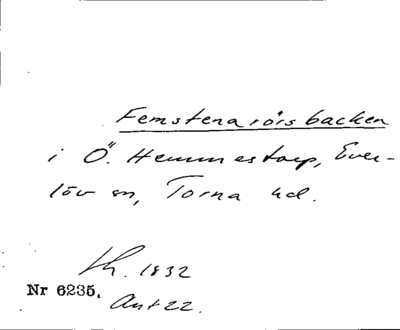 Femstenarörsbacken
i Ö. Hemmestorp, Ever-
löv sn, Torna hd.
Lh. 1832
Nr 6235.
Ant 22.